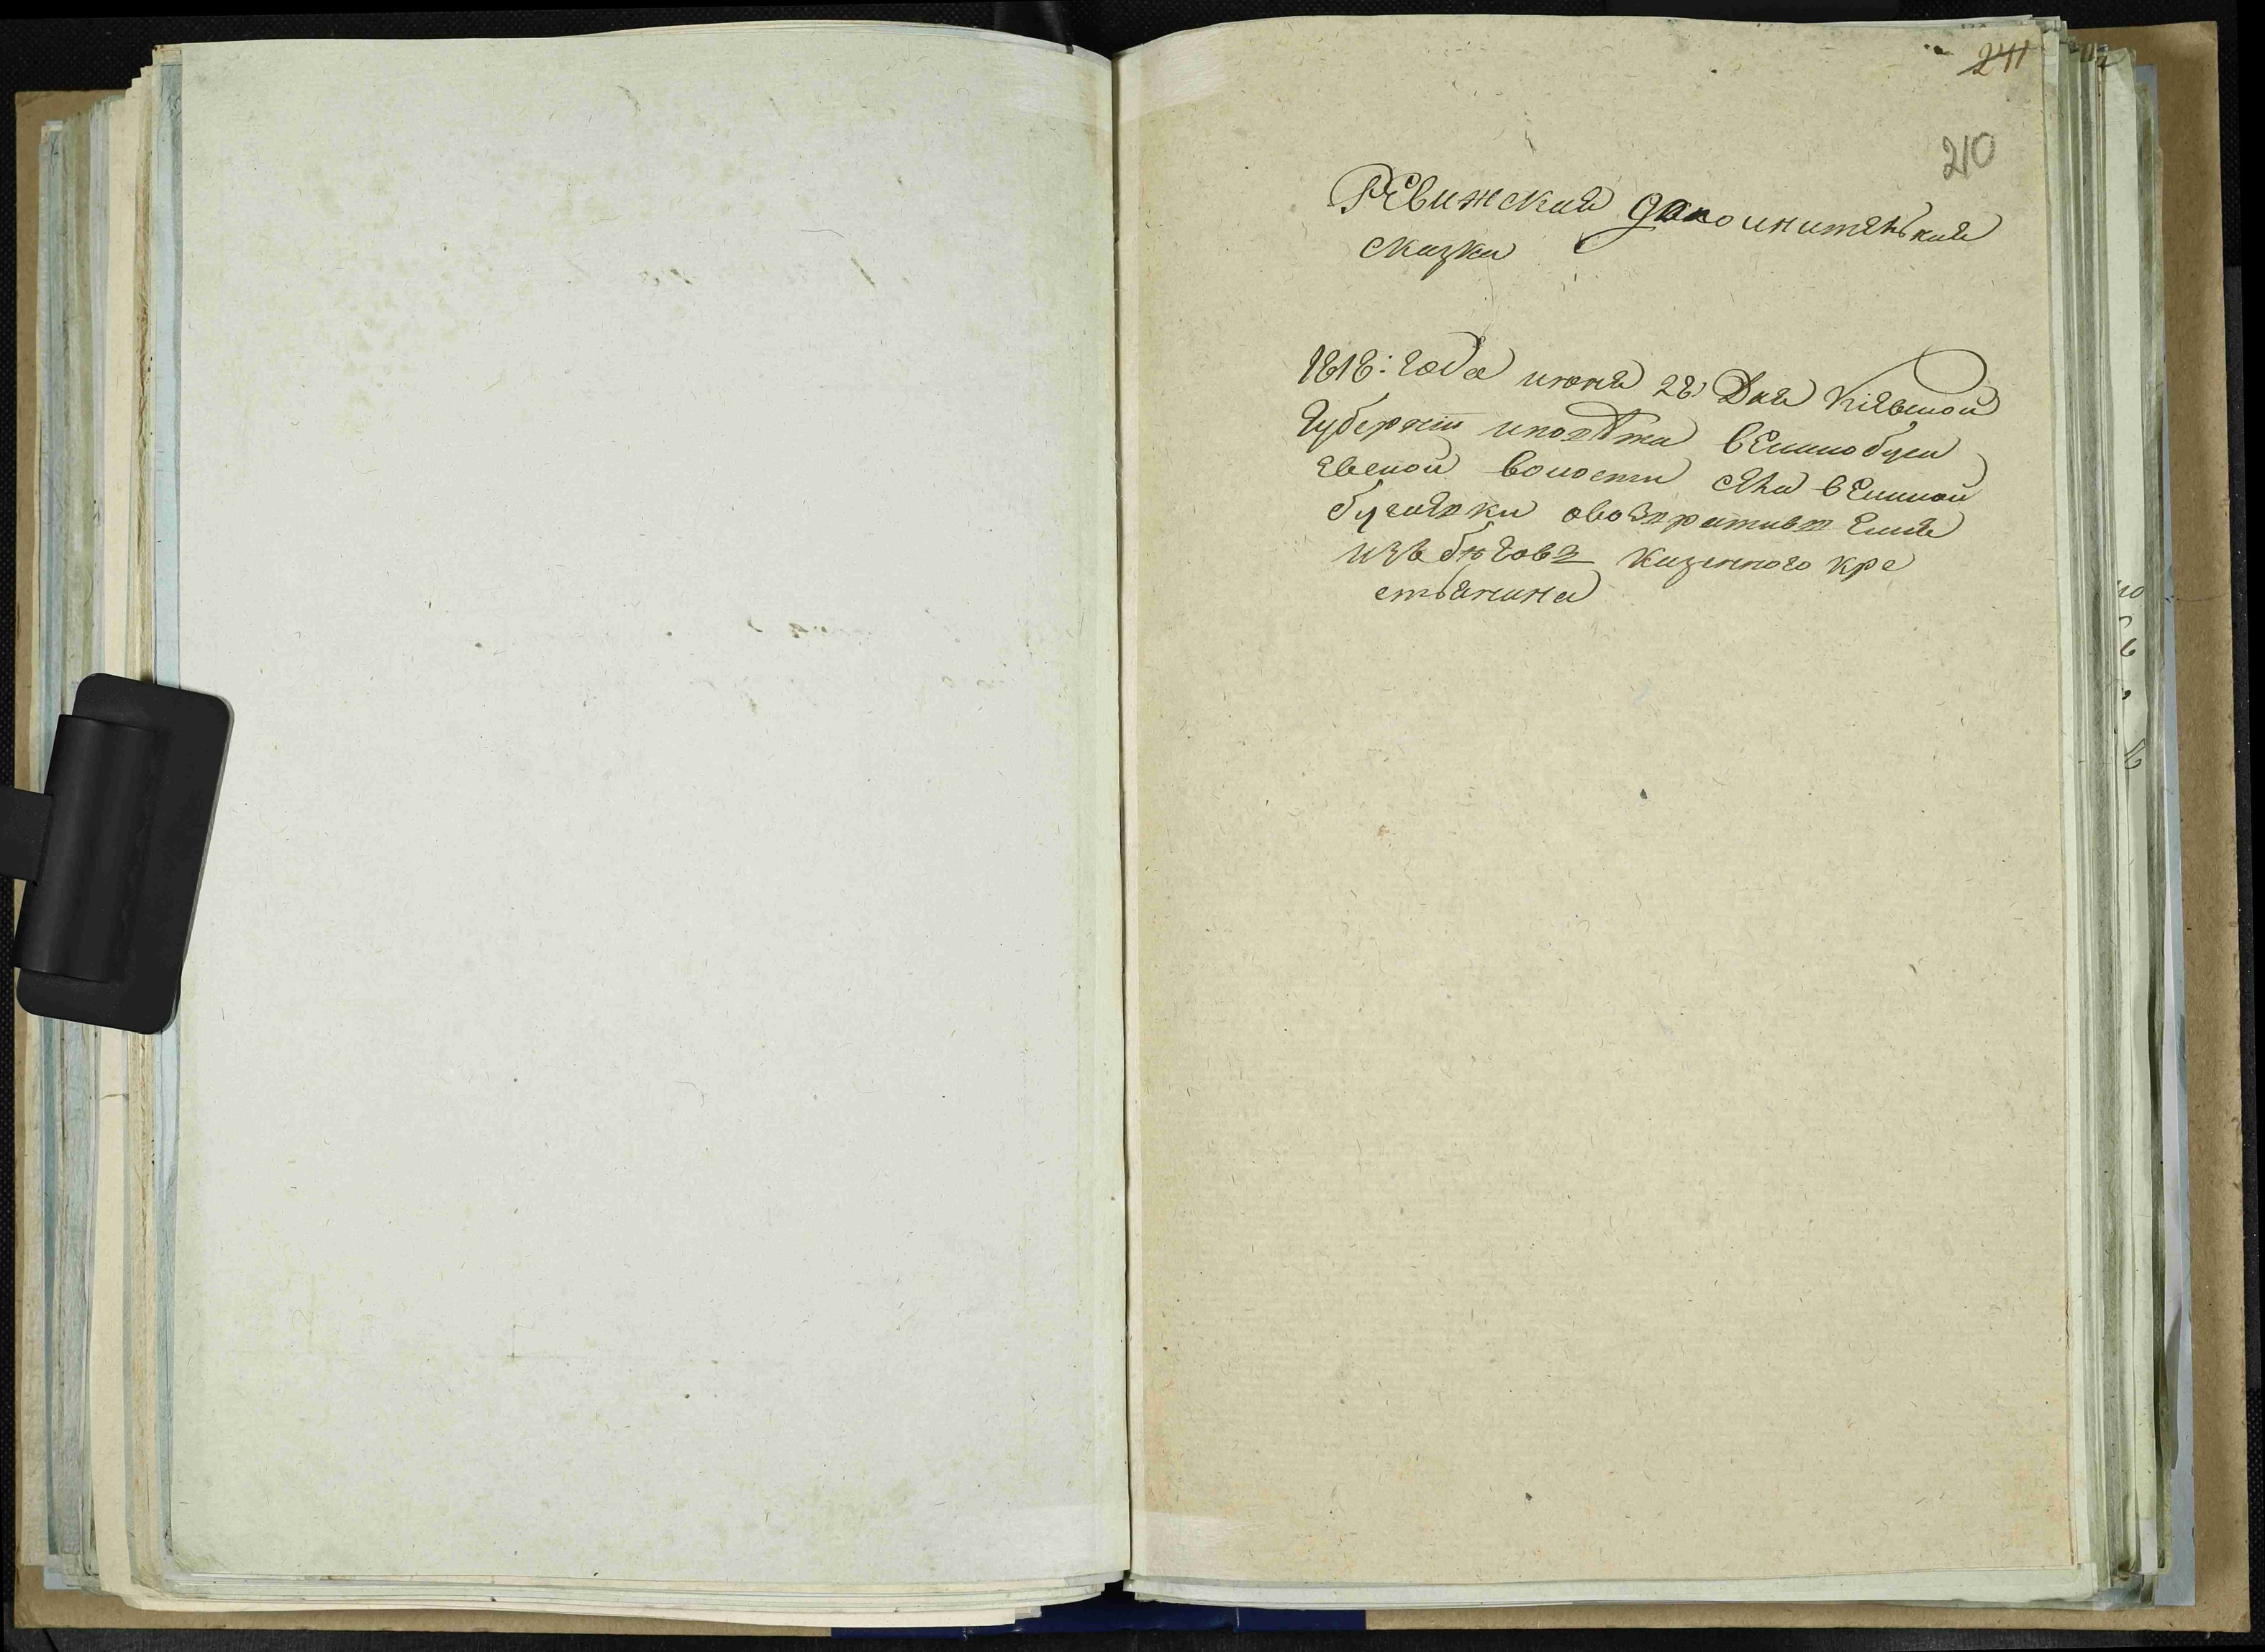 241
210
Ревижская дополнителькая
сказка
1818: года июня 28 Дня Кіевской
Губерніи иповѣта вЕликобуга
евской волости сЕла вЕликой
бугаевки овозвративъ Емся
изъ бѣговъ казенного кре
стьянина